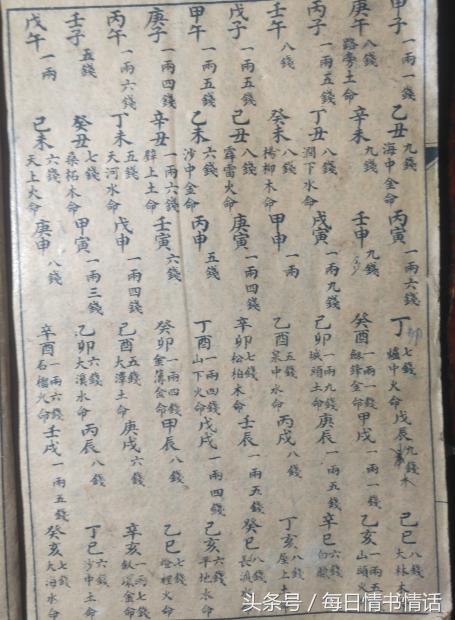 甲子 一兩一錢 乙丑 九錢 海中金命 丙寅 一兩六錢 丁卯 七錢 爐中火命 戊辰 九錢 木 己巳 八錢 大林木
庚午 八錢 路旁土命 辛未 九錢 壬申 九錢 癸酉 一兩一錢 劍鋒金命 甲戌 一兩一錢 乙亥 一兩五 山頭火
丙子 一兩五錢 丁丑 八錢 澗下水命 戊寅 一兩九錢 己卯 一兩九錢 城頭土命 庚辰 一兩五錢 辛巳 六錢 白
壬午 八錢 癸未 八錢 楊柳木命 甲申 一兩 乙酉 五錢 泉中水命 丙戌 八錢 丁亥 八錢 屋上土
戊子 一兩五錢 己丑 八錢 霹雷火命 庚寅 一兩四錢 辛卯 七錢 松柏木命 壬辰 一兩五錢 癸巳 八錢 長流
甲午 一兩五錢 乙未 六錢 沙中金命 丙申 五錢 丁酉 一兩四錢 山下火命 戊戌 一兩四錢 己亥 六錢 平地木命
庚子 一兩四錢 辛丑 一兩六錢 壁上土命 壬寅 六錢 癸卯 一兩四錢 金簿金命 甲辰 八錢 乙巳 七錢 燈裡火命
丙午 一兩六錢 丁未 五錢 天河水命 戊申 一兩四錢 己酉 五錢 大澤土命 庚戌 六錢 辛亥 一兩七錢 釵環金命
壬子 五錢 癸丑 七錢 桑柘木命 甲寅 一兩三錢 乙卯 六錢 大溪水命 丙辰 八錢 丁巳 六錢 沙中土命
戊午 一兩 己未 六錢 天上火命 庚申 八錢 辛酉 一兩六錢 石榴火命 壬戌 一兩五錢 癸亥 七錢 大海水命
头条号 / 每日情书情话